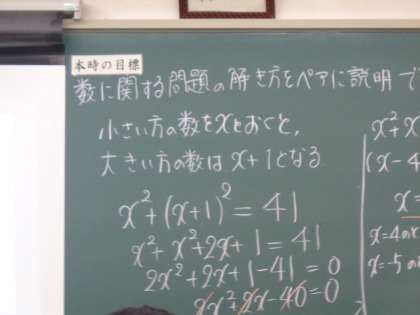 本時の目標
数に関する問題の解き方をペアに説明で
小さい方の数をxとおくと,
大きい方の数はx+1となる
x²+(x+1)²=41
x²+x²+2x+1=41
2x²+2x+1-41=0
2x²+2x-40=0
x²+x
(x-4
x=
x=4のと
x=-5の